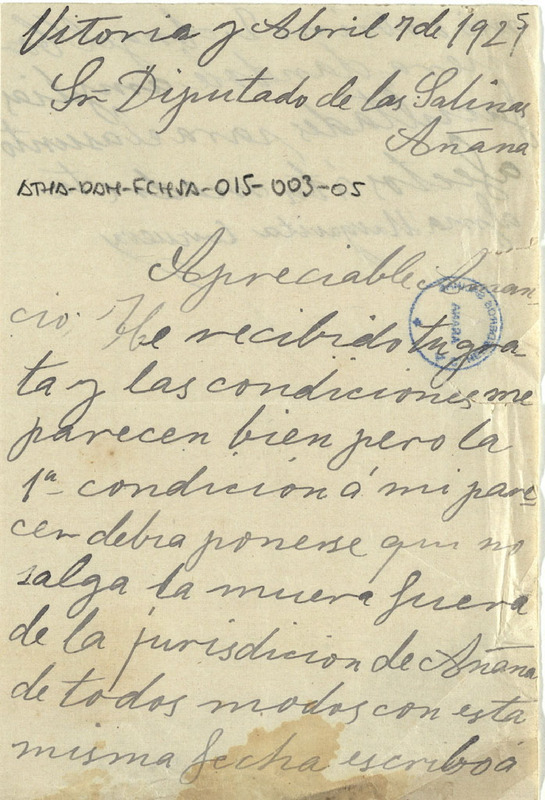 Vitoria y Abril 7 de 1925
Sr Diputado de las Salinas
Añana
ATHA-DAH-FCHVSA-015-003-05
Apreciable
cio. He recibido tu gra-
ta y las condiciones me
parecen bien pero la
1ª condición á mi pare-
cer debia ponerse que no
salga la muera fuera
de la jurisdicion de Añana
de todos modos con esta
misma fecha escribo á
AÑANA